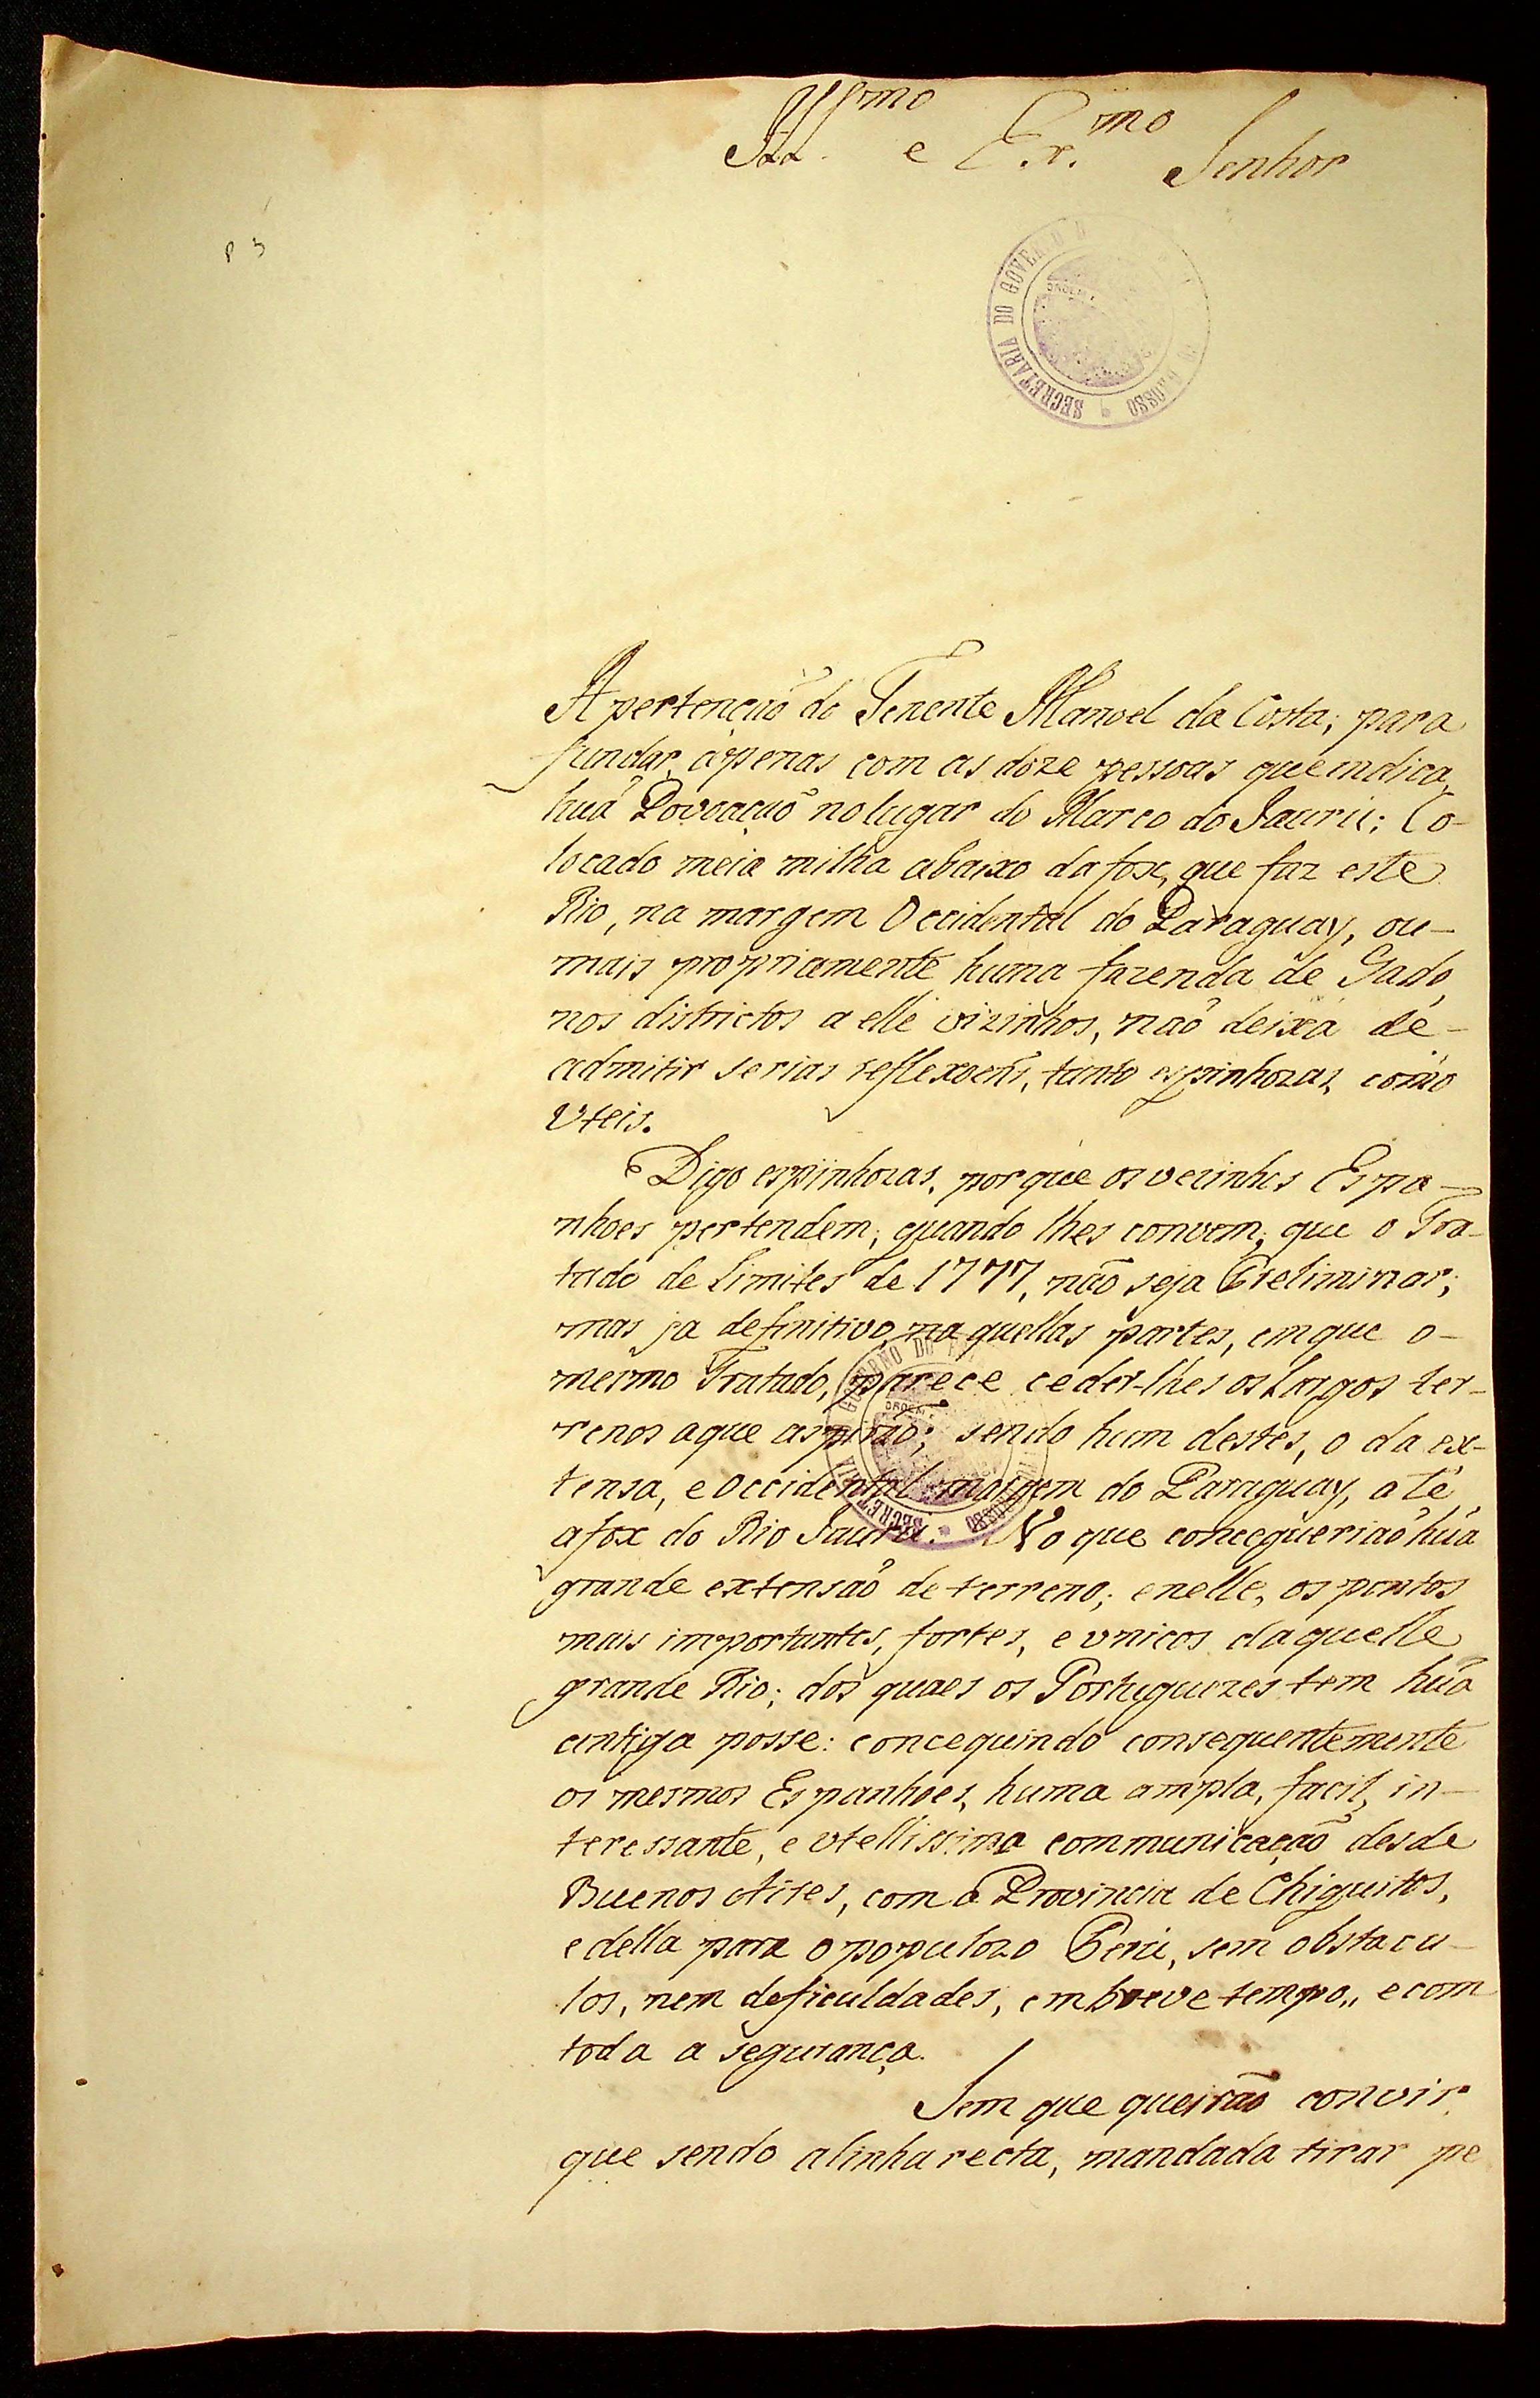 Ill.mo e Ex.mo Senhor
P 5
SECRETARIA DO GOVERNO D GROSSO
ORDEM E
A pertenção do Tenente Manoel da Costa; para
fundar, apenas com as doze pessoas que indica,
huã Povoação no lugar do Marco do Jaurú; Co-
locado meia milha abaixo da fox, que faz este
Rio, na margem Occidental do Paraguay, ou-
mais propriamente huma fazenda de Gado,
nos districtos a elle vizinhos, não deixa de-
admitir serias reflexoens, tanto espinhozas, como
uteis.
Digo espinhozas, porque os vezinhos Espa-
nhoes pertendem; quando lhes convem; que o Tra-
tado de Limites de 1777, não seja Preliminar;
mas ja definitivo, naquellas partes, em que o-
mesmo Tratado, parece ceder-lhes os largos ter-
renos aque aspirão; sendo hum destes, o da ex-
tensa, e occidental margem do Paraguay, até
afox do Rio Jaurú. No que concegueriaõ hũa
grande extensão de terreno; enelle, os pontos
mais importantes, fortes, e unicos daquelle
grande Rio; dos quaes os Portuguezes tem hũa
antiga posse: conceguindo consequentemente
os mesmos Espanhoes, huma ampla, facil, in-
teressante, e utellissima communicação desde
Buenos Aires, com a Provincia de Chiquitos,
e della para o populozo Perú, sem obstacu-
los, nem deficuldades, em breve tempo,, e com
toda a segurança.
Sem que queirão convir
que sendo alinha recta, mandada tirar pe
SECRETARIA DO GOVERNO DO GROSSO
ORDEM E